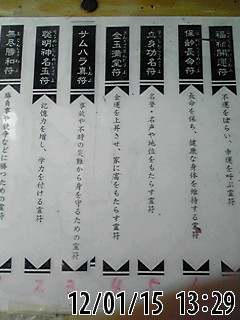 福祉開運符
不運をはらい、幸運を呼ぶ霊符
保齢長命符
長命を保ち、健康な身体を維持する霊符
立身大名符
名誉・名声や地位をもたらす霊符
金玉満堂符
金運を上昇させ、家に富をもたらす霊符
サムハラ真符
事故や不時の災難から身を守るための霊符
聡明神名玉符
記憶力を増し、学力を付ける霊符
無尽勝和符
勝負事や競争などに勝つための霊符
2 3 4 5 6
12/01/15 13:29